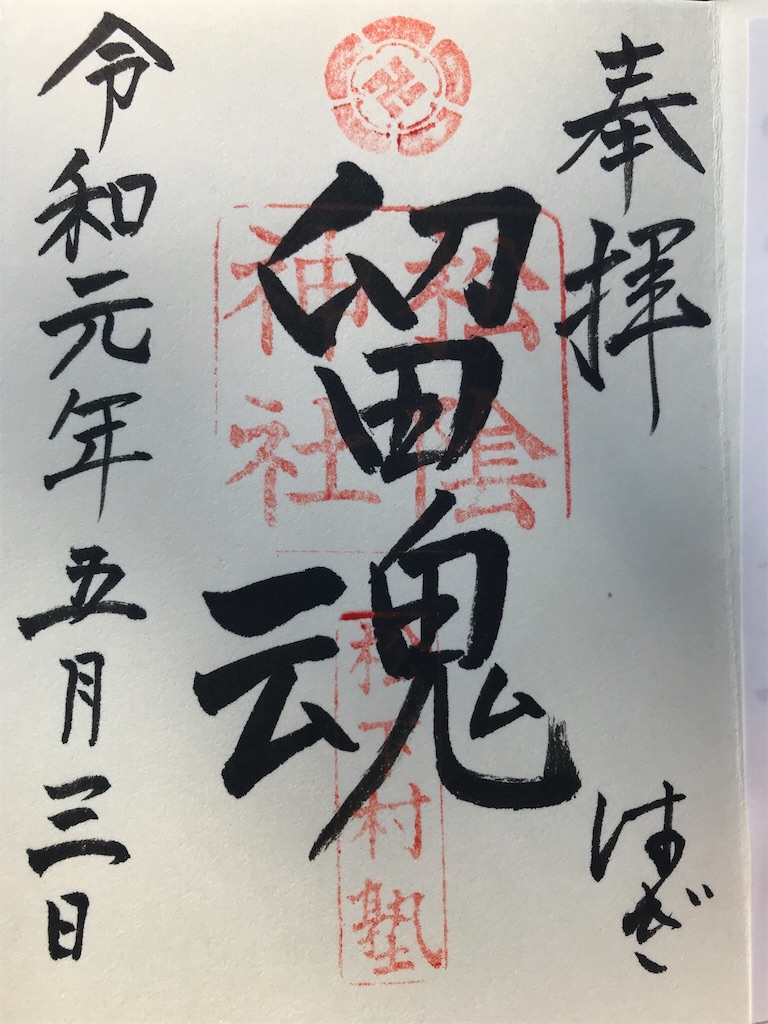 奉拝
はぎ
留魂
松陰
神社
松下村塾
令和元年五月三日